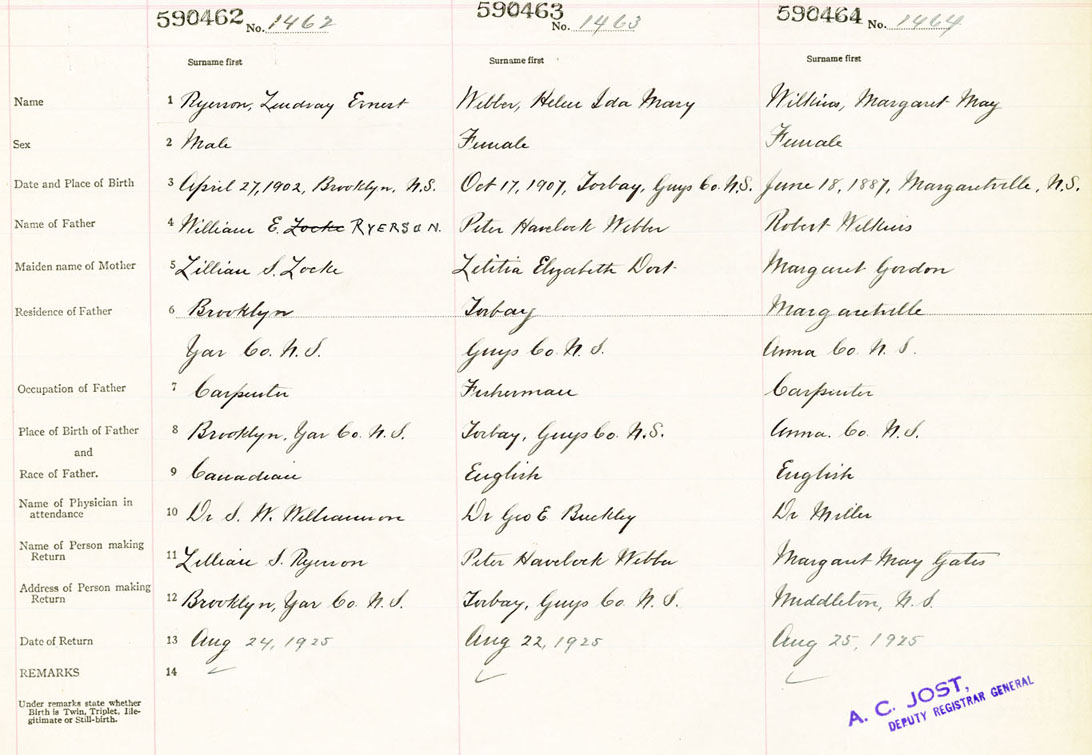 590462 No. 1462 590463 No. 1463 590464 No. 1464
Surname first Surname first Surname first
Name 1 Ryerson, Lindsay Ernest Webber, Helen Ida Mary Wilkins, Margaret May
Sex 2 Male Female Female
Date and Place of Birth 3 April 27, 1902, Brooklyn, N.S. Oct 17, 1907, Torbay, Guys Co. N.S. June 18, 1887, Margaretville, N.S.
Name of Father 4 William E. Locke RYERSON. Peter Havelock Webber Robert Wilkins
Maiden name of Mother 5 Lillian S. Locke Letitia Elizabeth Dort Margaret Gordon
Residence of Father 6 Brooklyn Torbay Margaretville
Yar Co. N.S. Guys Co. N.S. Anna Co. N.S.
Occupation of Father 7 Carpenter Fisherman Carpenter
Place of Birth of Father 8 Brooklyn, Yar Co. N.S. Torbay, Guys Co. N.S. Anna. Co. N.S.
and
Race of Father. 9 Canadian English English
Name of Physician in
attendance 10 Dr S. W. Williamson Dr Geo E. Buckley Dr Miller
Name of Person making
Return 11 Lillian S. Ryerson Peter Havelock Webber Margaret May Gates
Address of Person making
Return 12 Brooklyn, Yar Co. N.S. Torbay, Guys Co. N.S. Middleton, N.S.
Date of Return 13 Aug 24, 1925 Aug 22, 1925 Aug 25, 1925
REMARKS 14
Under remarks state whether
Birth is Twin, Triplet, Ille-
gitimate or Still-birth.
A. C. JOST,
DEPUTY REGISTRAR GENERAL